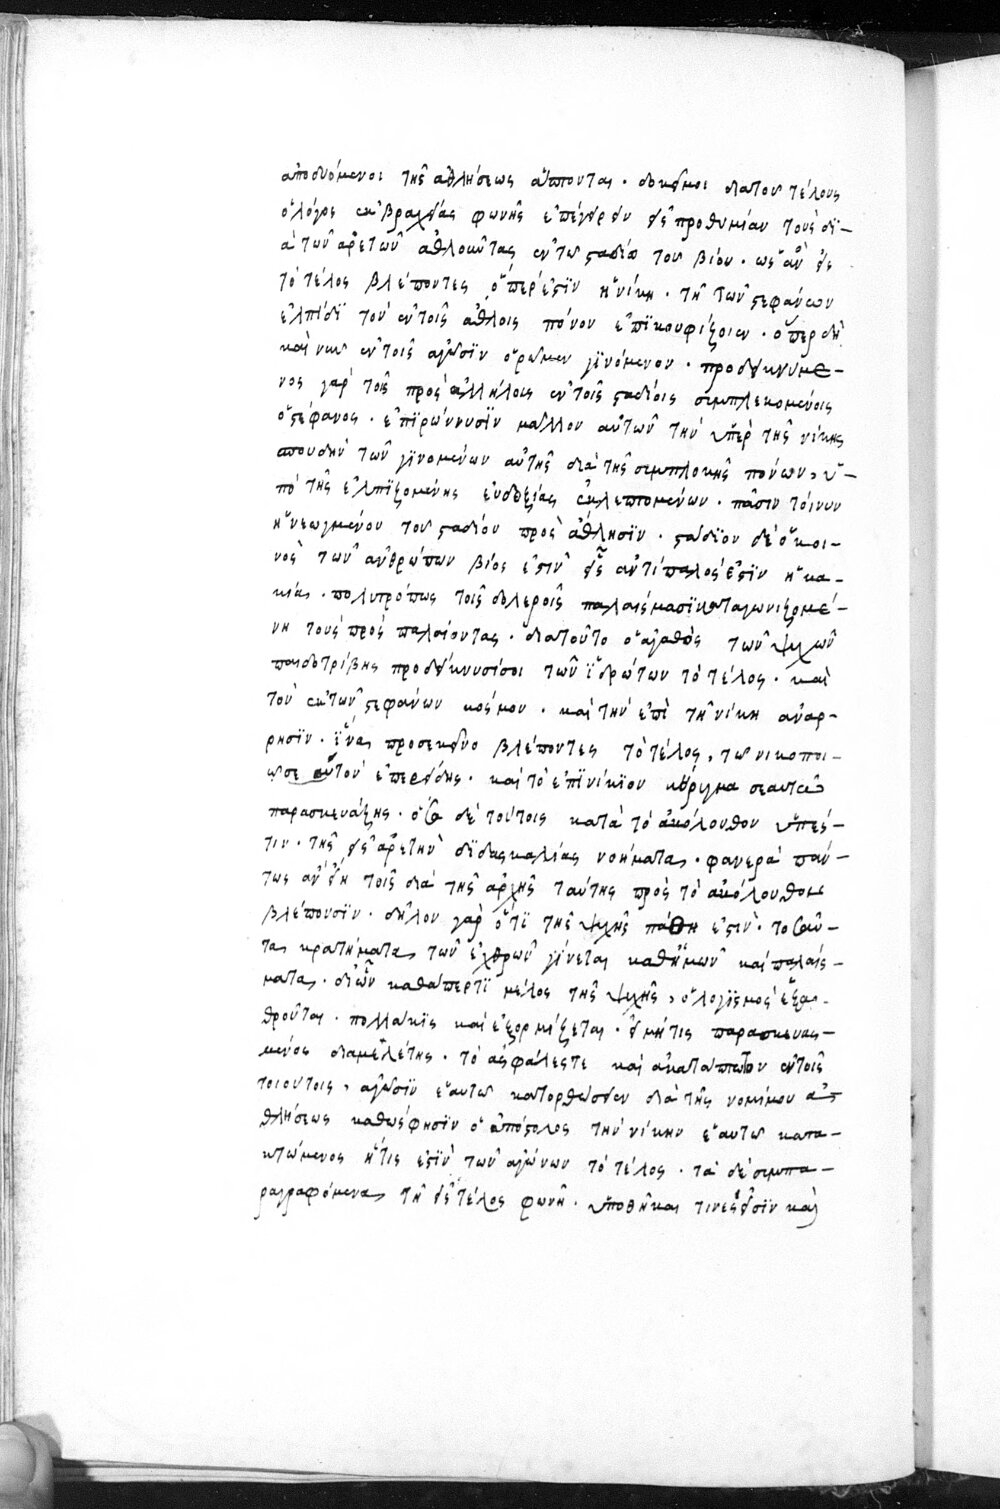 ἀποδυόμενοι τῆς ἀθλήσεως ἅπτονται · δοκεῖ μοι διὰ τοῦ τέλους
ὁ λόγος ἐκ βραχείας φωνῆς ἐπεγείρειν εἰς προθυμίαν τοὺς δϊ–
ὰ τῶν ἀρετῶν ἀθλοῦντας ἐν τῶ σταδίω τοῦ βίου · ὡς ἂν εἰς
τὸ τέλος βλέποντες ὅπέρ ἐστϊν ἡ νίκη · τῆ τῶν στεφάνων
ἐλπίδϊ τὸν ἐν τοῖς ἄθλοις πόνον ἐπϊκουφίζοιεν · ὅπερ δὴ
καὶ νῦν ἐν τοῖς ἀγῶσϊν ὁρῶμεν γϊνόμενον · προδεικνύμε–
νος γὰρ τοῖς πρὸς ἀλλήλοις ἐν τοῖς σταδίοις συμπλεκομένοις
ὁ στέφανος · ἐπϊρώννυσϊν μᾶλλον αὐτῶν τὴν ὑπὲρ τῆς νίκης
σπουδὴν τῶν γϊνομένων αὐτῆς διὰ τῆς συμπλοκῆς πόνων, ὑ–
πὸ τῆς ἐλπϊζομένης εὐδοξίας ἐκλεπτομένων · πᾶσιν τοίνυν
ἠνεωγμένου τοῦ σταδίου πρὸς ἄθλησϊν · στάδϊον δὲ ὁ κοι–
νὸς τῶν ἀνθρώπων βίος ἐστὶν εἷς ἀντίπαλός ἐστϊν ἡ κα–
κία · πολυτρόπως τοῖς δολεροῖς παλαίσμασϊ καταγωνιζομέ–
νη τοὺς προσπαλαίοντας · διὰ τοῦτο ὁ ἀγαθὸς τῶν ψυχῶν
παιδοτρίβης προδείκνυσί σοι τῶν ἱδρώτων τὸ τέλος · καὶ
τὸν ἐκ τῶν στεφάνων κόσμον · καὶ τὴν ἐπὶ τῆ νίκη ἀνάρ–
ρησϊν · ἵνα πρὸς ἐκεῖνο βλέποντες τὸ τέλος, τῶ νικοποι–
ῶ σε αὐτὸν ἐπερείδης · καὶ τὸ ἐπϊνίκϊον κήρυγμα σεαυτῶ
παρασκευάζης · ὅσα δὲ τούτοις κατὰ τὸ ἀκόλουθον ὕπεσ–
τιν · τῆς εἰς ἀρετὴν δϊδασκαλίας νοήματα · φανερὰ πάν–
τως ἂν εἴη τοῖς διὰ τῆς ἀρχῆς ταύτης πρὸς τὸ ἀκόλουθον
βλέπουσϊν · δῆλον γὰρ ὅτϊ τῆς ψυχῆς πάθη ἐστὶν · τοσαῦ–
τα κρατήματα τῶν ἐχθρῶν γίνεται καθ' ἡμῶν καὶ παλαίσ–
ματα · δι' ὧν καθάπερ τϊ μέλος τῆς ψυχῆς, ὁ λογϊσμὸς ἐξαρ–
θροῦται · πολλάκϊς καὶ ἐξορμίζεται · εἰ μή τις παρασκευασ–
μένος διὰ μελέτης · τὸ ἀσφαλές τε καὶ ἀκατάπτωτον ἐν τοῖς
τοιούτοις, ἀγῶσϊν ἑαυτῶ κατορθώσειεν διὰ τῆς νομίμου ἀ–
θλήσεως καθώς φησϊν ὁ ἀπόστολος τὴν νίκην ἑαυτῶ κατα–
κτώμενος ἥτις ἐστϊν τῶν ἀγώνων τὸ τέλος · τὰ δὲ συμπα–
ραγραφόμενα τῆ εἰς τέλος φωνῆ · ὑποθῆκαι τινές εἰσϊν καὶ